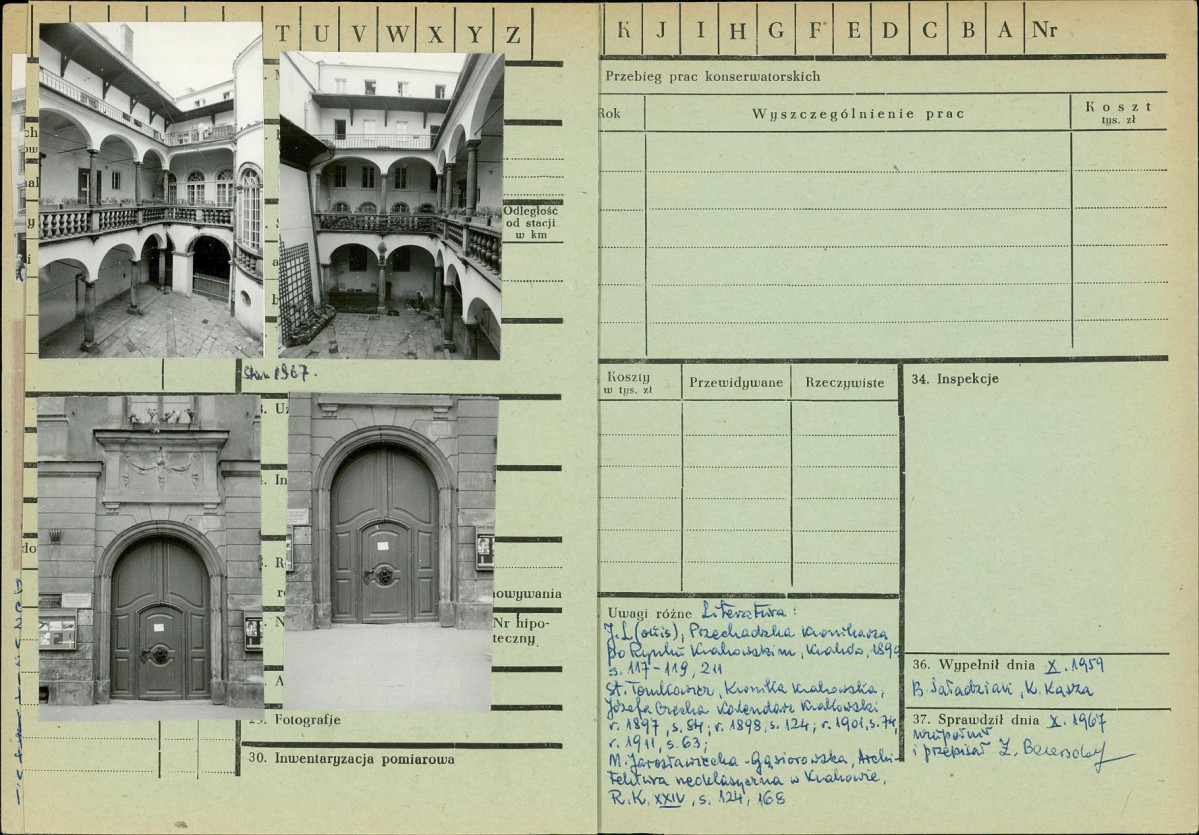 T U V W X Y Z
Odległość
od stacji
w km
Stan 1967.
owywania
Nr hipo-
teczny
Fotografje
30. Inwentaryzacja pomiarowa
K J I H G F E D C B A Nr
Przebieg prac konserwatorskich
Rok
Wyszczególnienie prac
Koszt
tys. zł
Koszty
w tys. zł
Przewidywane
Rzeczywiste
34. Inspekcje
Uwagi różne Literatura:
J. L(ouis), Przechadzka Kronikarza
po Rynku Krakowskim, Kraków, 1890
s. 117-119, 211
St. Tomkowicz, Kronika Krakowska,
Józefa Czecha Kalendarz Krakowski
r. 1897, s. 84; r. 1898, s. 124; r. 1901, s. 74,
r. 1911, s. 63;
M. Jarosławiecka-Gąsiorowska, Archi-
tektura neoklasyczna w Krakowie,
R.K. XXIV, s. 124, 168
36. Wypełnił dnia X. 1959
K. Kasza
37. Sprawdził dnia X. 1967
uzupełnił
i przepisał Z.